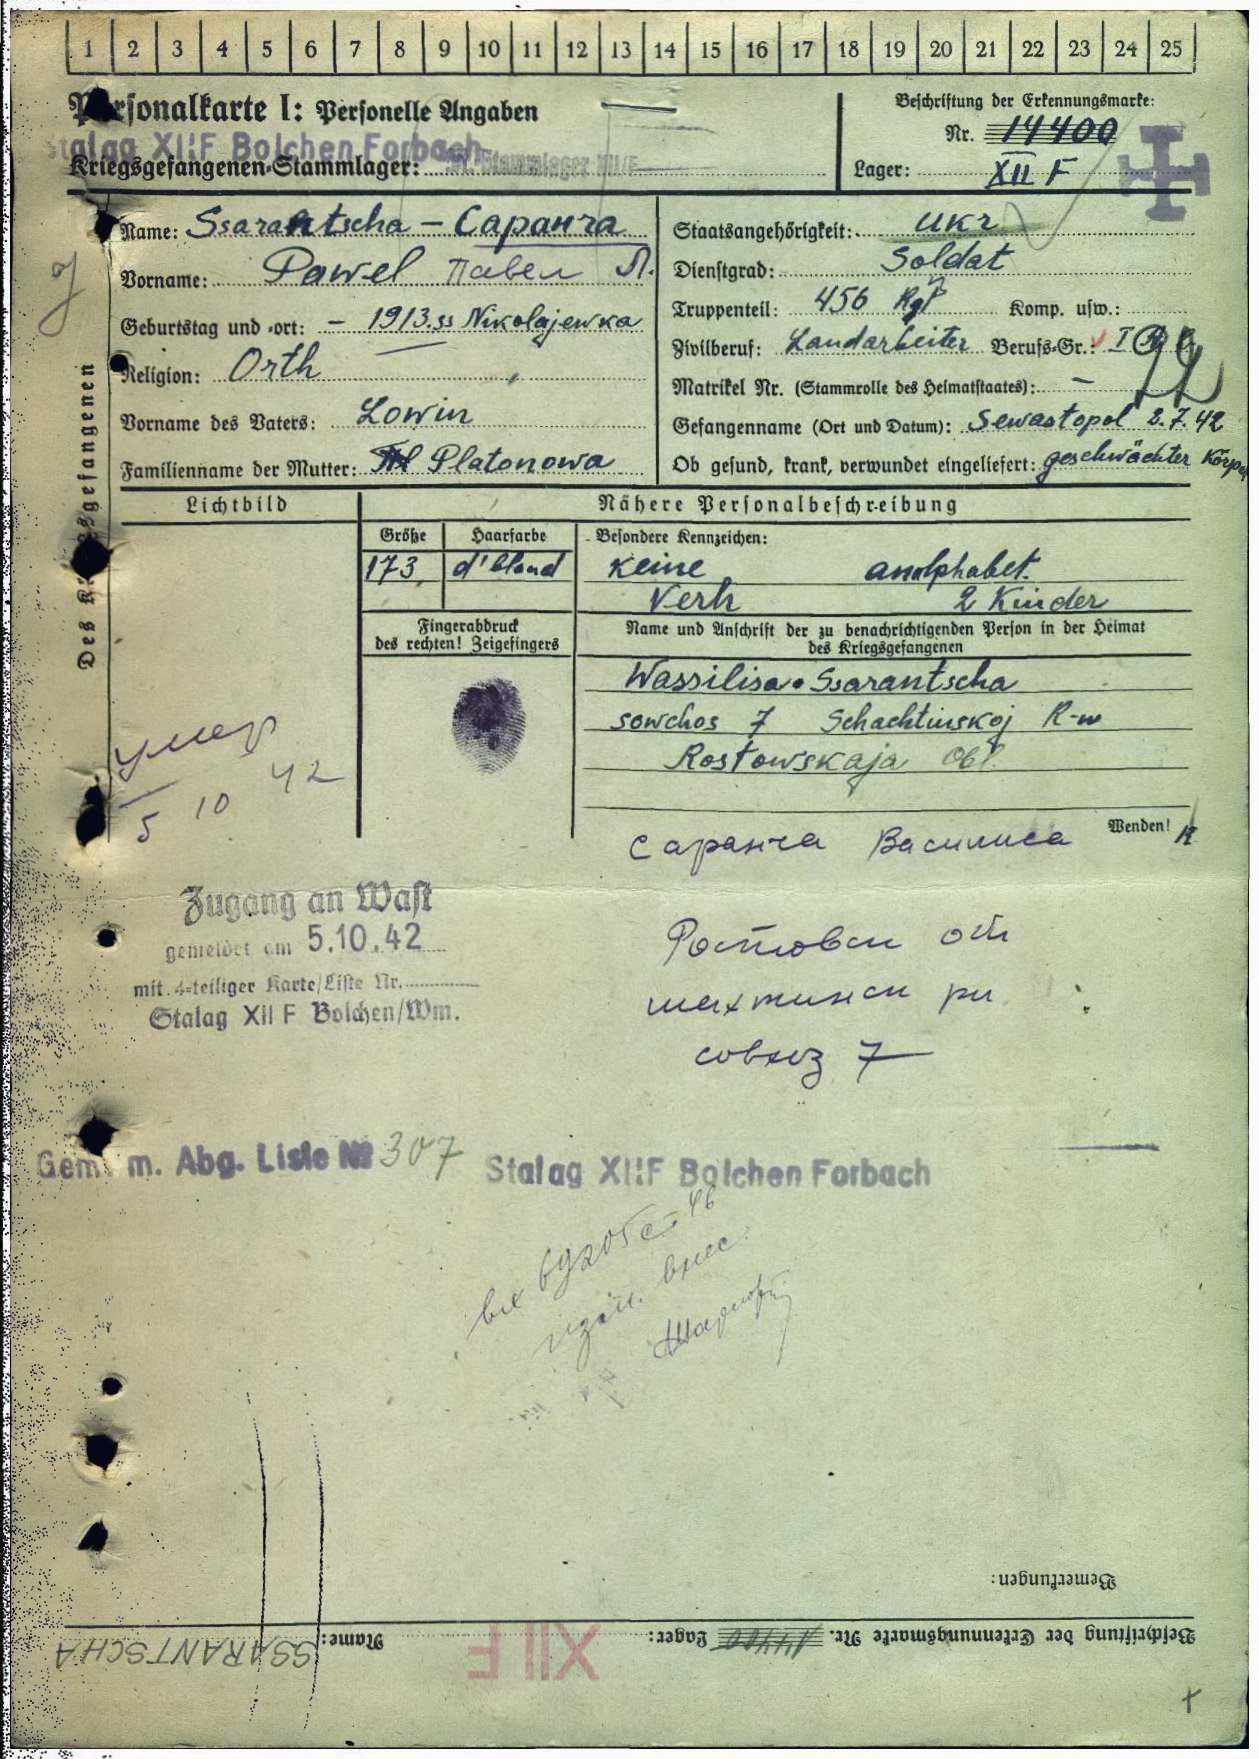 1 2 3 4 5 6 7 8 9 10 11 12 13 14 15 16 17 18 19 20 21 22 23 24 25
Personalkarte I: Personelle Angaben
Beschriftung der Erkennungsmarke:
Nr. 14400
Stalag XII F Bolchen Forbach
Kriegsgefangenen-Stammlager:
Lager: XII F
Name: Ssarantscha – Саранча
Vorname: Pawel Павел Л.
Geburtstag und -ort: – 1913. ss Nikolajewka
Religion: Orth
Vorname des Vaters: Lowin
Familienname der Mutter: Platonowa
Staatsangehörigkeit: ukr
Dienstgrad: Soldat
Truppenteil: 456 Rgt Komp. usw.:
Zivilberuf: Landarbeiter Berufs-Gr.: I
Matrikel Nr. (Stammrolle des Heimatstaates): –
Gefangenname (Ort und Datum): Sewastopol 3.7.42
Ob gesund, krank, verwundet eingeliefert: geschwächter Körper
Des Kriegsgefangenen
Lichtbild
Nähere Personalbeschreibung
Größe Haarfarbe Besondere Kennzeichen:
173 d'blond keine analphabet.
Verh 2 Kinder
Fingerabdruck
des rechten! Zeigefingers
Name und Anschrift der zu benachrichtigenden Person in der Heimat
des Kriegsgefangenen
Wassilisa Ssarantscha
sowchos 7 Schachtinskoj R-w
Rostowskaja Obl.
умер
5 10 42
Wenden!
Саранча Василиса
Ростовск обл
шахтинск рн
совхоз 7
Zugang an Wast
gemeldet am 5.10.42
mit 4-teiliger Karte/Liste Nr.
Stalag XII F Bolchen/Wm.
Gem. m. Abg. Liste № 307 Stalag XII F Bolchen Forbach
Bemerkungen:
Beschriftung der Erkennungsmarke Nr. 14400 Lager: XII F Name: SSARANTSCHA